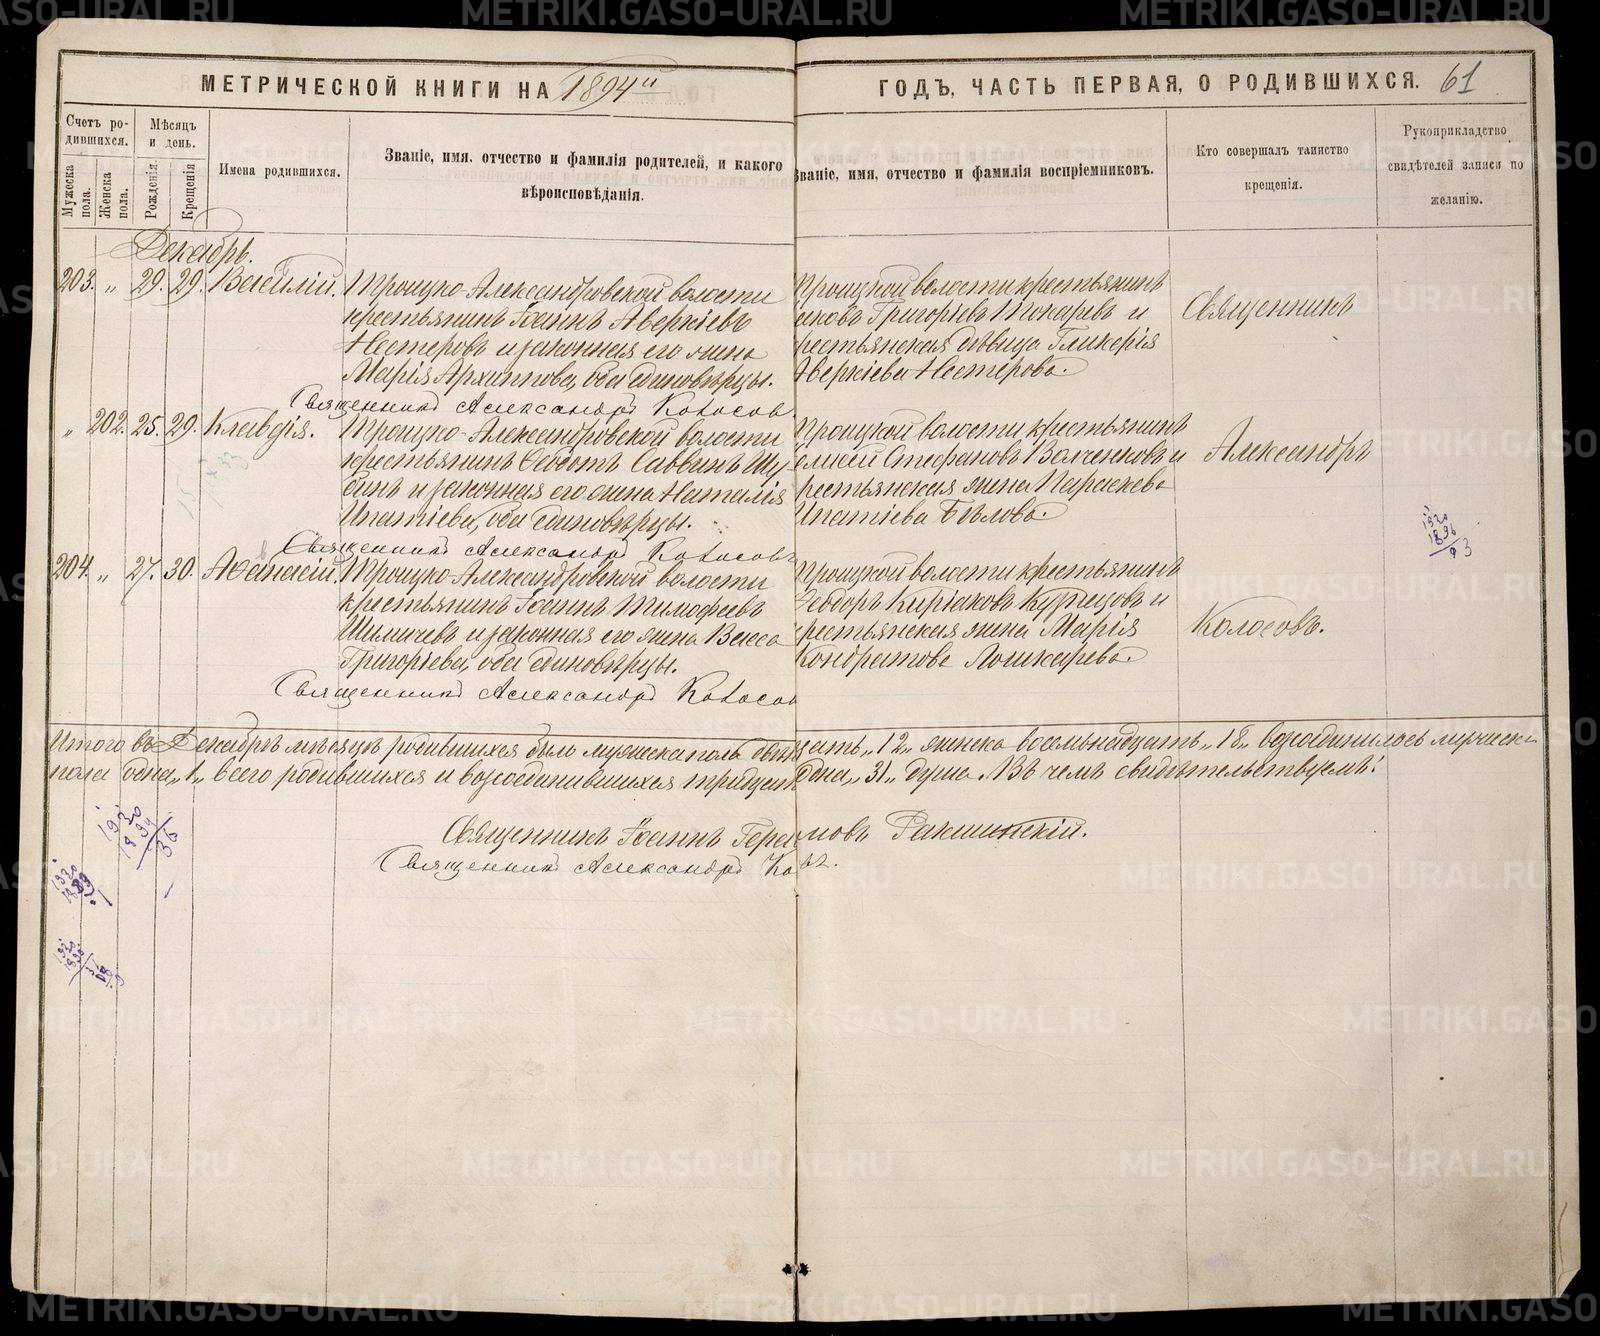 МЕТРИЧЕСКОЙ КНИГИ НА 1894й ГОДЪ, ЧАСТЬ ПЕРВАЯ, О РОДИВШИХСЯ. 61
Счетъ ро-
дившихся.
Мужеска пола.
Женска пола.
Мѣсяцъ
и день.
Рожденія.
Крещенія
Имена родившихся.
Званіе, имя, отчество и фамилія родителей, и какого
вѣроисповѣданія.
Званіе, имя, отчество и фамилія воспріемниковъ.
Кто совершалъ таинство
крещенія.
Рукоприкладство
свидѣтелей записи по
желанію.
Декабрь.
203. „ 29. 29. Василій.
Троицко-Александровской волости
крестьянинъ Іоаннъ Аверкіевъ
Нестеровъ и законная его жена
Марія Архиппова, оба единовѣрцы.
Священникъ Александръ Колосов
Троицкой волости крестьянинъ
Григоріевъ Токаревъ и
рестьянская дѣвица Гликерія
Аверкіева Нестерова.
Священникъ
„ 202. 25. 29. Клавдія.
Троицко-Александровской волости
крестьянинъ Ѳедотъ Саввинъ Шу
бинъ и законная его жена Наталія
Ипатіева, оба единовѣрцы.
Священникъ Александръ Колосовъ
Троицкой волости крестьянинъ
Стефановъ Волченковъ и
рестьянская жена Параскева
Ипатіева Бѣлова.
Александръ
204. „ 27. 30. Аѳанасій.
Троицко-Александровской волости
крестьянинъ Іоаннъ Тимофеевъ
Шиличевъ и законная его жена Васса
Григоріева, оба единовѣрцы.
Священникъ Александръ Колосов
Троицкой волости крестьянинъ
Ѳеодоръ Кириковъ Кузнецовъ и
рестьянская жена Марія
Кондратова Лошкарева.
Колосовъ.
1920
1894
36
Итого въ Декабрѣ мѣсяцѣ родившихся было мужеска пола двѣнадцать „12„ женска восемьнадцать „18„ возсоединилось мужеска
пола одна „1„ всего родившихся и возсоединившихся тридцать одна „31„ душа. Въ чемъ свидѣтельствуемъ:
Священникъ Іоаннъ Герасимовъ Ракшинскій.
Священникъ Александръ Ковъ.
METRIKI.GASO-URAL.RU